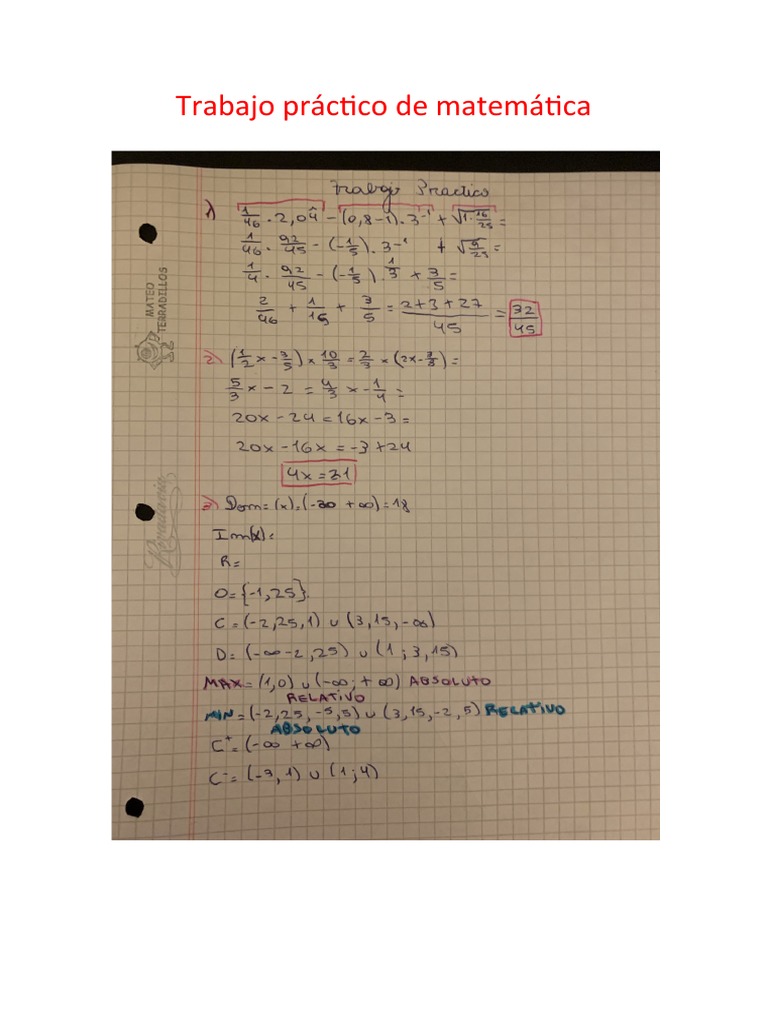 Trabajo práctico de matemática
Trabajo Practico
1 1/46 · 2,04̂ - (0,8-1) · 3⁻¹ + √1-16/25 =
1/46 · 92/45 - (-1/5) · 3⁻¹ + √9/25 =
1/4 · 92/45 - (-1/5) · 1/3 + 3/5 =
2/46 + 1/15 + 3/5 = 2+3+27/45 = 32/45
2) (1/2 x - 3/5) × 10/3 = 2/3 × (2x - 3/8) =
5/3 x - 2 = 4/3 x - 1/4 =
20x - 24 = 16x - 3 =
20x - 16x = -3 + 24
4x = 21
3) Dom = (x) = (-∞ +∞) = 18
Im(x) =
R =
O = {-1,25}.
C = (-2,25,1) ∪ (3,15,-∞)
D = (-∞ -2,25) ∪ (1;3,15)
MAX = (1,0) ∪ (-∞;+∞) ABSOLUTO
RELATIVO
MIN = (-2,25,-5,5) ∪ (3,15,-2,5) RELATIVO
ABSOLUTO
C⁺ = (-∞ +∞)
C⁻ = (-3,1) ∪ (1;4)
MATEO
TERRADILLOS
Rivadavia